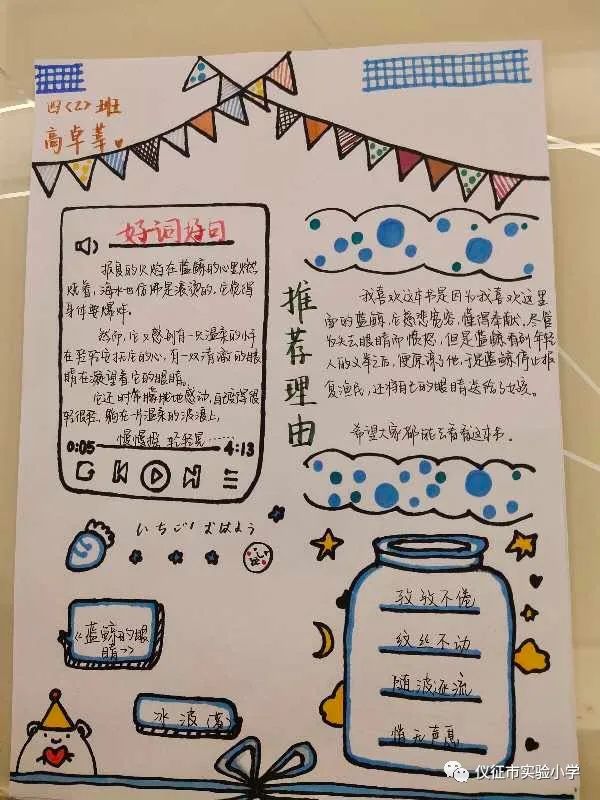 四（2）班
高卓
好词好句
报复的火焰在蓝鲸的心里燃
烧着，海水也仿佛是滚烫的，它觉得
身体要爆炸。
然而，它又感到有一双温柔的小手
在轻轻它托它的心，有一双清澈的眼
睛在凝望着它的眼睛。
它还时常朦胧地感动，自己变得很
轻很轻，躺在一片温柔的波浪上，
慢慢摇 轻轻晃……
0:05
4:13
推荐理由
我喜欢这本书是因为我喜欢这里
面的蓝鲸，它慈悲宽容，懂得奉献，尽管
失去眼睛而愤怒，但是蓝鲸看到年轻
人的文笔之后，便原谅了他，于是蓝鲸停止报
复渔民，还将自己的眼睛送给了女孩。
希望大家都能去看看这本书。
いちご！おはよう
《蓝鲸的眼
睛》
冰波（著）
孜孜不倦
纹丝不动
随波逐流
悄无声息
仪征市实验小学